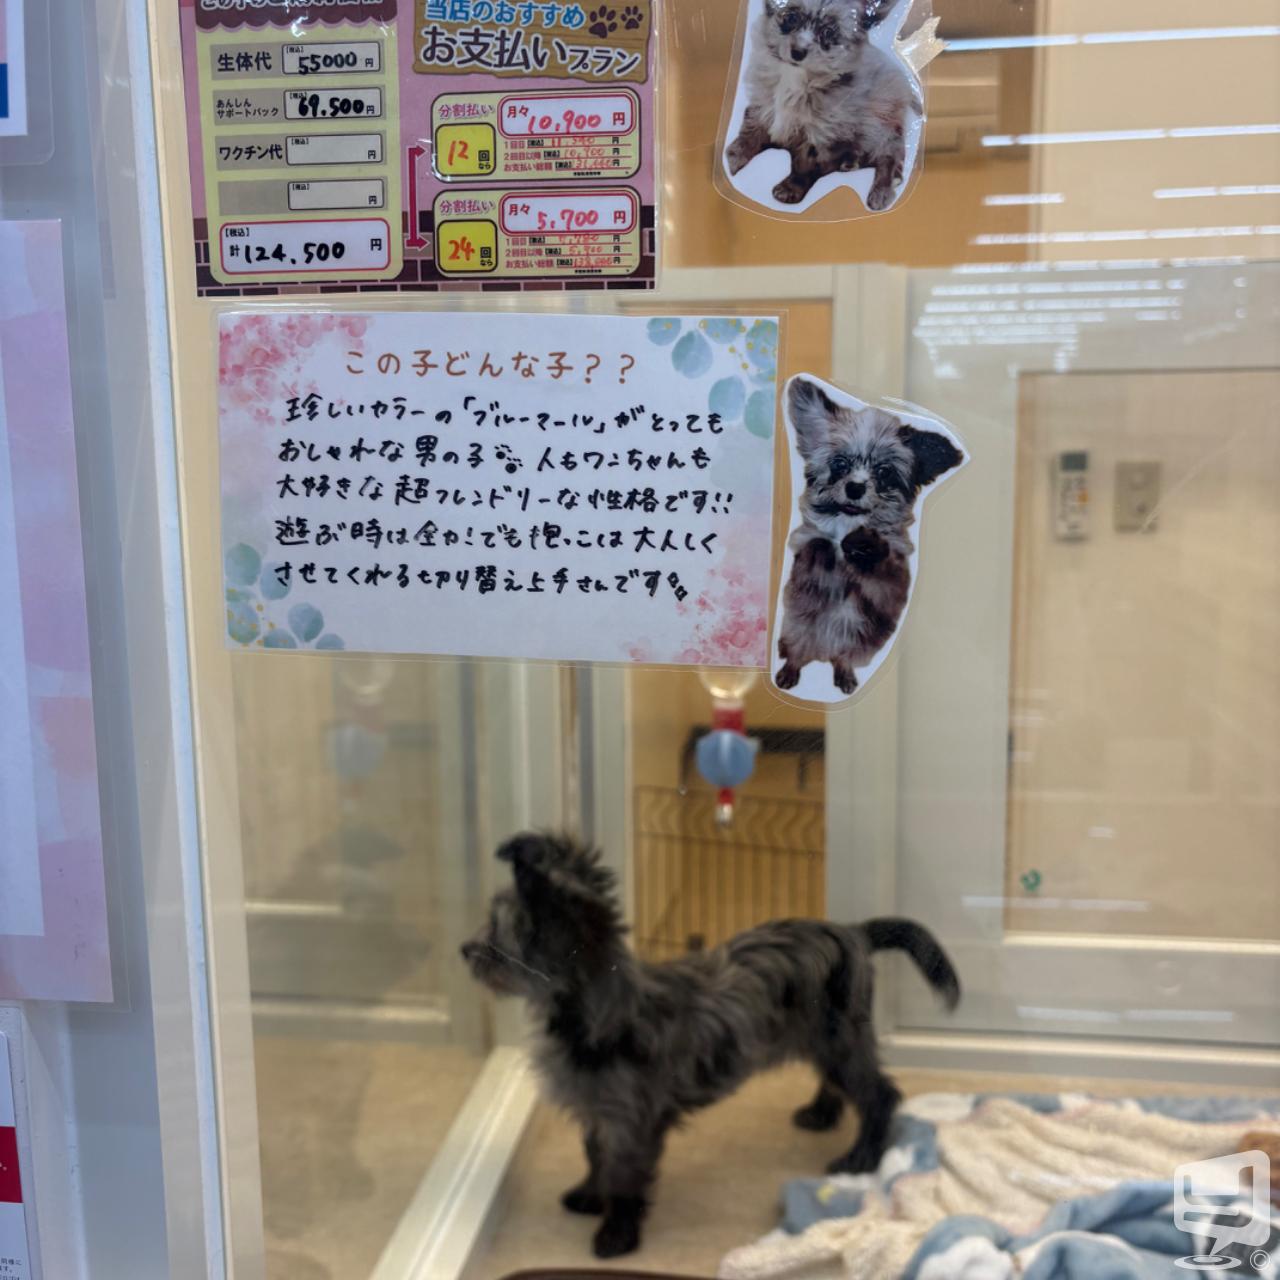 当店のおすすめ
お支払いプラン
生体代 【税込】 55000 円
あんしん
サポートパック 【税込】 69.500 円
ワクチン代 【税込】 円
【税込】 円
【税込】
計 124.500 円
分割払い 月々 10,900 円
12 回
なら
1回目【税込】 円
2回目以降【税込】 10,900 円
お支払い総額【税込】 円
分割払い 月々 5,700 円
24 回
なら
1回目【税込】 円
2回目以降【税込】 5,700 円
お支払い総額【税込】 円
この子どんな子??
珍しいカラーの「ブルーマール」がとっても
おしゃれな男の子 人もワンちゃんも
大好きな超フレンドリーな性格です!!
遊ぶ時は全力!でも抱っこは大人しく
させてくれる切り替え上手さんです